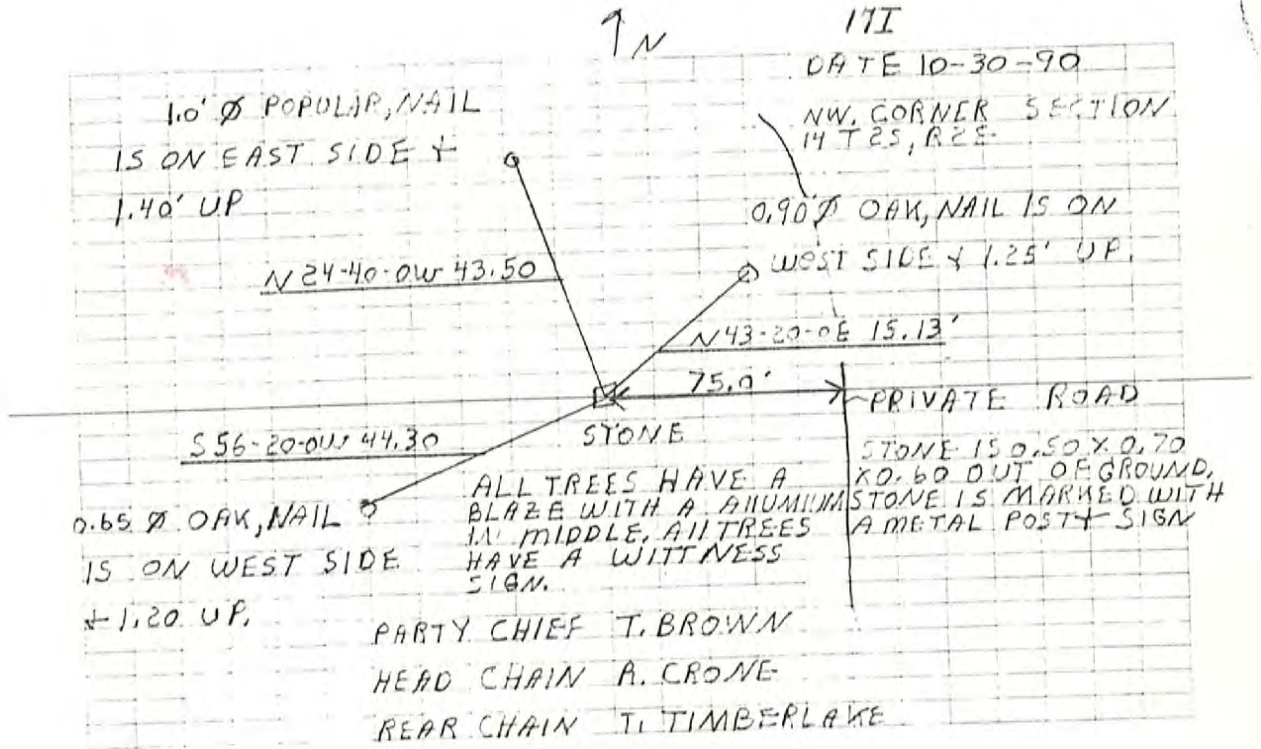 17I
N
DATE 10-30-90
NW. CORNER SECTION
14 T2S, R2E
1.0' Ø POPULAR, NAIL
IS ON EAST SIDE +
1.40' UP
0.90' Ø OAK, NAIL IS ON
WEST SIDE + 1.25' UP.
N 24-40-0W 43.50
N 43-20-0E 15.13'
75.0'
PRIVATE ROAD
STONE
S 56-20-0W 44.30
STONE IS 0.50 X 0.70
X0.60 OUT OF GROUND.
STONE IS MARKED WITH
A METAL POST + SIGN
ALL TREES HAVE A
BLAZE WITH A AllUMIUM
IN MIDDLE. All TREES
HAVE A WITTNESS
SIGN.
0.65 Ø OAK, NAIL
IS ON WEST SIDE
+ 1.20 UP.
PARTY CHIEF T. BROWN
HEAD CHAIN A. CRONE
REAR CHAIN T. TIMBERLAKE